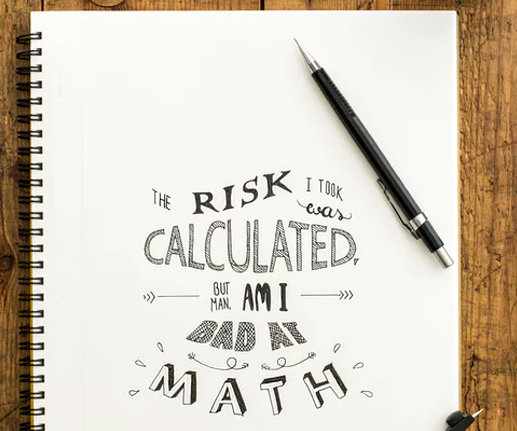 THE RISK I TOOK
was
CALCULATED,
BUT
MAN, AM I
BAD AT
MATH